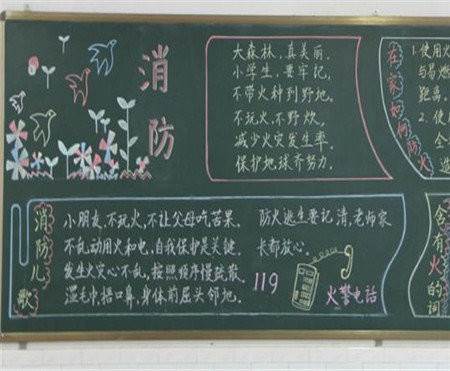 消防
大森林，真美丽.
小学生，要牢记，
不带火种到野地。
不玩火，不野炊，
减少火灾发生率，
保护地球齐努力.
在家如何防火
1. 使用火
与易燃
距离。
2. 使用
消防儿歌
小朋友，不玩火，不让父母吃苦果.
不乱动用火和电，自我保护是关键.
发生火灾心不乱，按照顺序慢疏散.
湿毛巾捂口鼻，身体前屈头邻地.
防火逃生要记清，老师家
长都放心。
119
火警电话
含有火的词